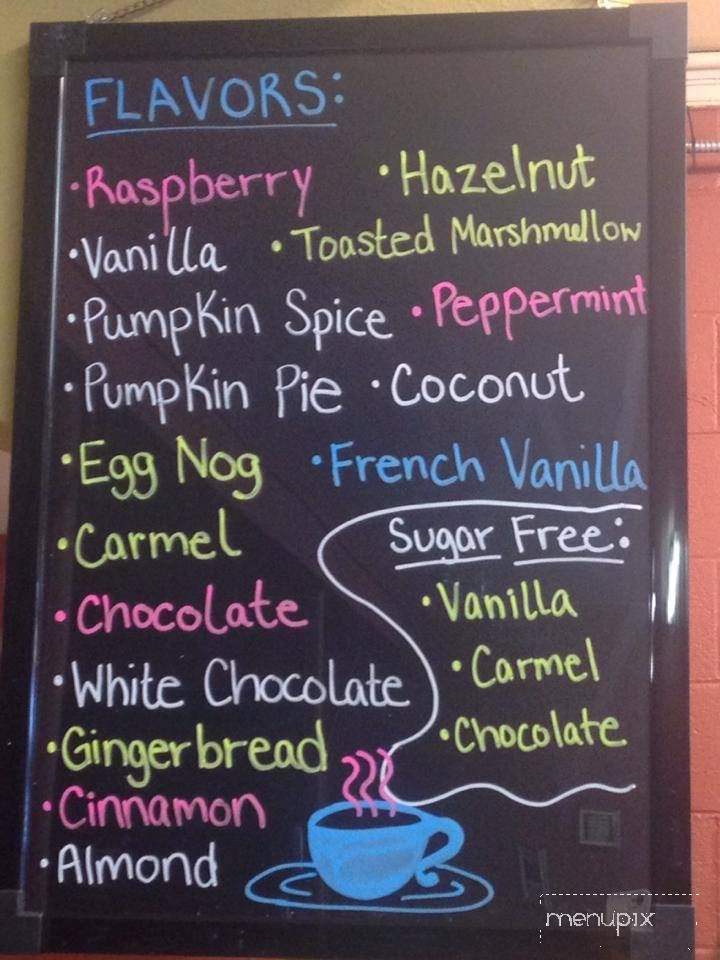 FLAVORS:
• Raspberry • Hazelnut
• Vanilla • Toasted Marshmellow
• Pumpkin Spice • Peppermint
• Pumpkin Pie • Coconut
• Egg Nog • French Vanilla
• Carmel
• Chocolate
• White Chocolate
• Gingerbread
• Cinnamon
• Almond
Sugar Free:
• Vanilla
• Carmel
• Chocolate
menupix